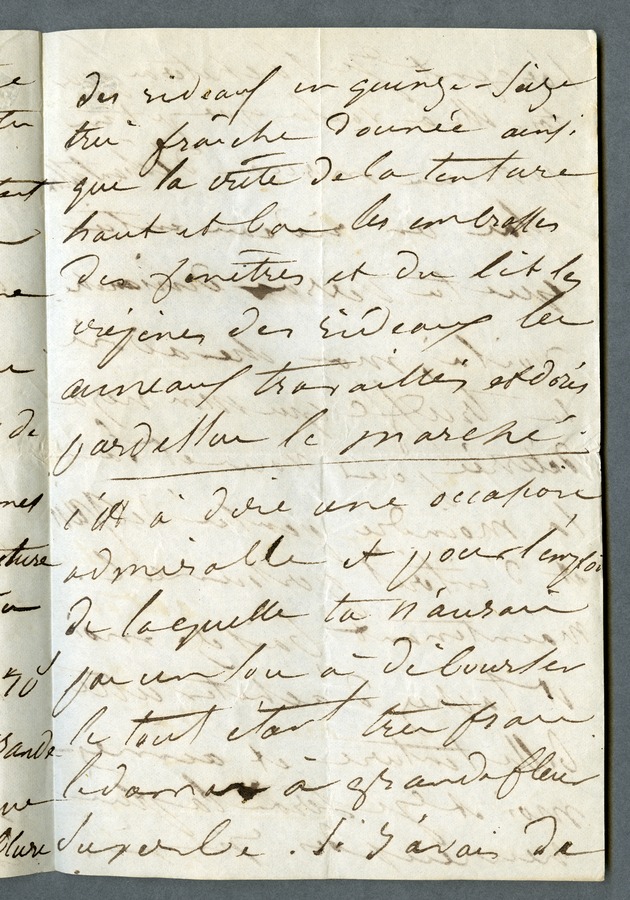 des rideaux en quinze-seize
très fraîche donnée ainsi
que la crète de la tenture
haut et bas les embrasses
des fenêtres et du lit les
des rideaux les
anneaux travaillés et dorés
pardessus le marché.
c'est à dire une occasion
admirable et pour l'emploi
de laquelle tu n'aurais
pas un sou à débourser
le tout étant très frais
le damas à grandes fleurs
superbe. Si j'avais de